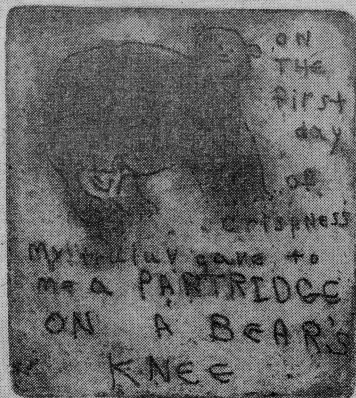 ON
THE
first
day
of
crispness
My truluv gave to
me a PARTRIDGE
ON A BEAR'S
KNEE